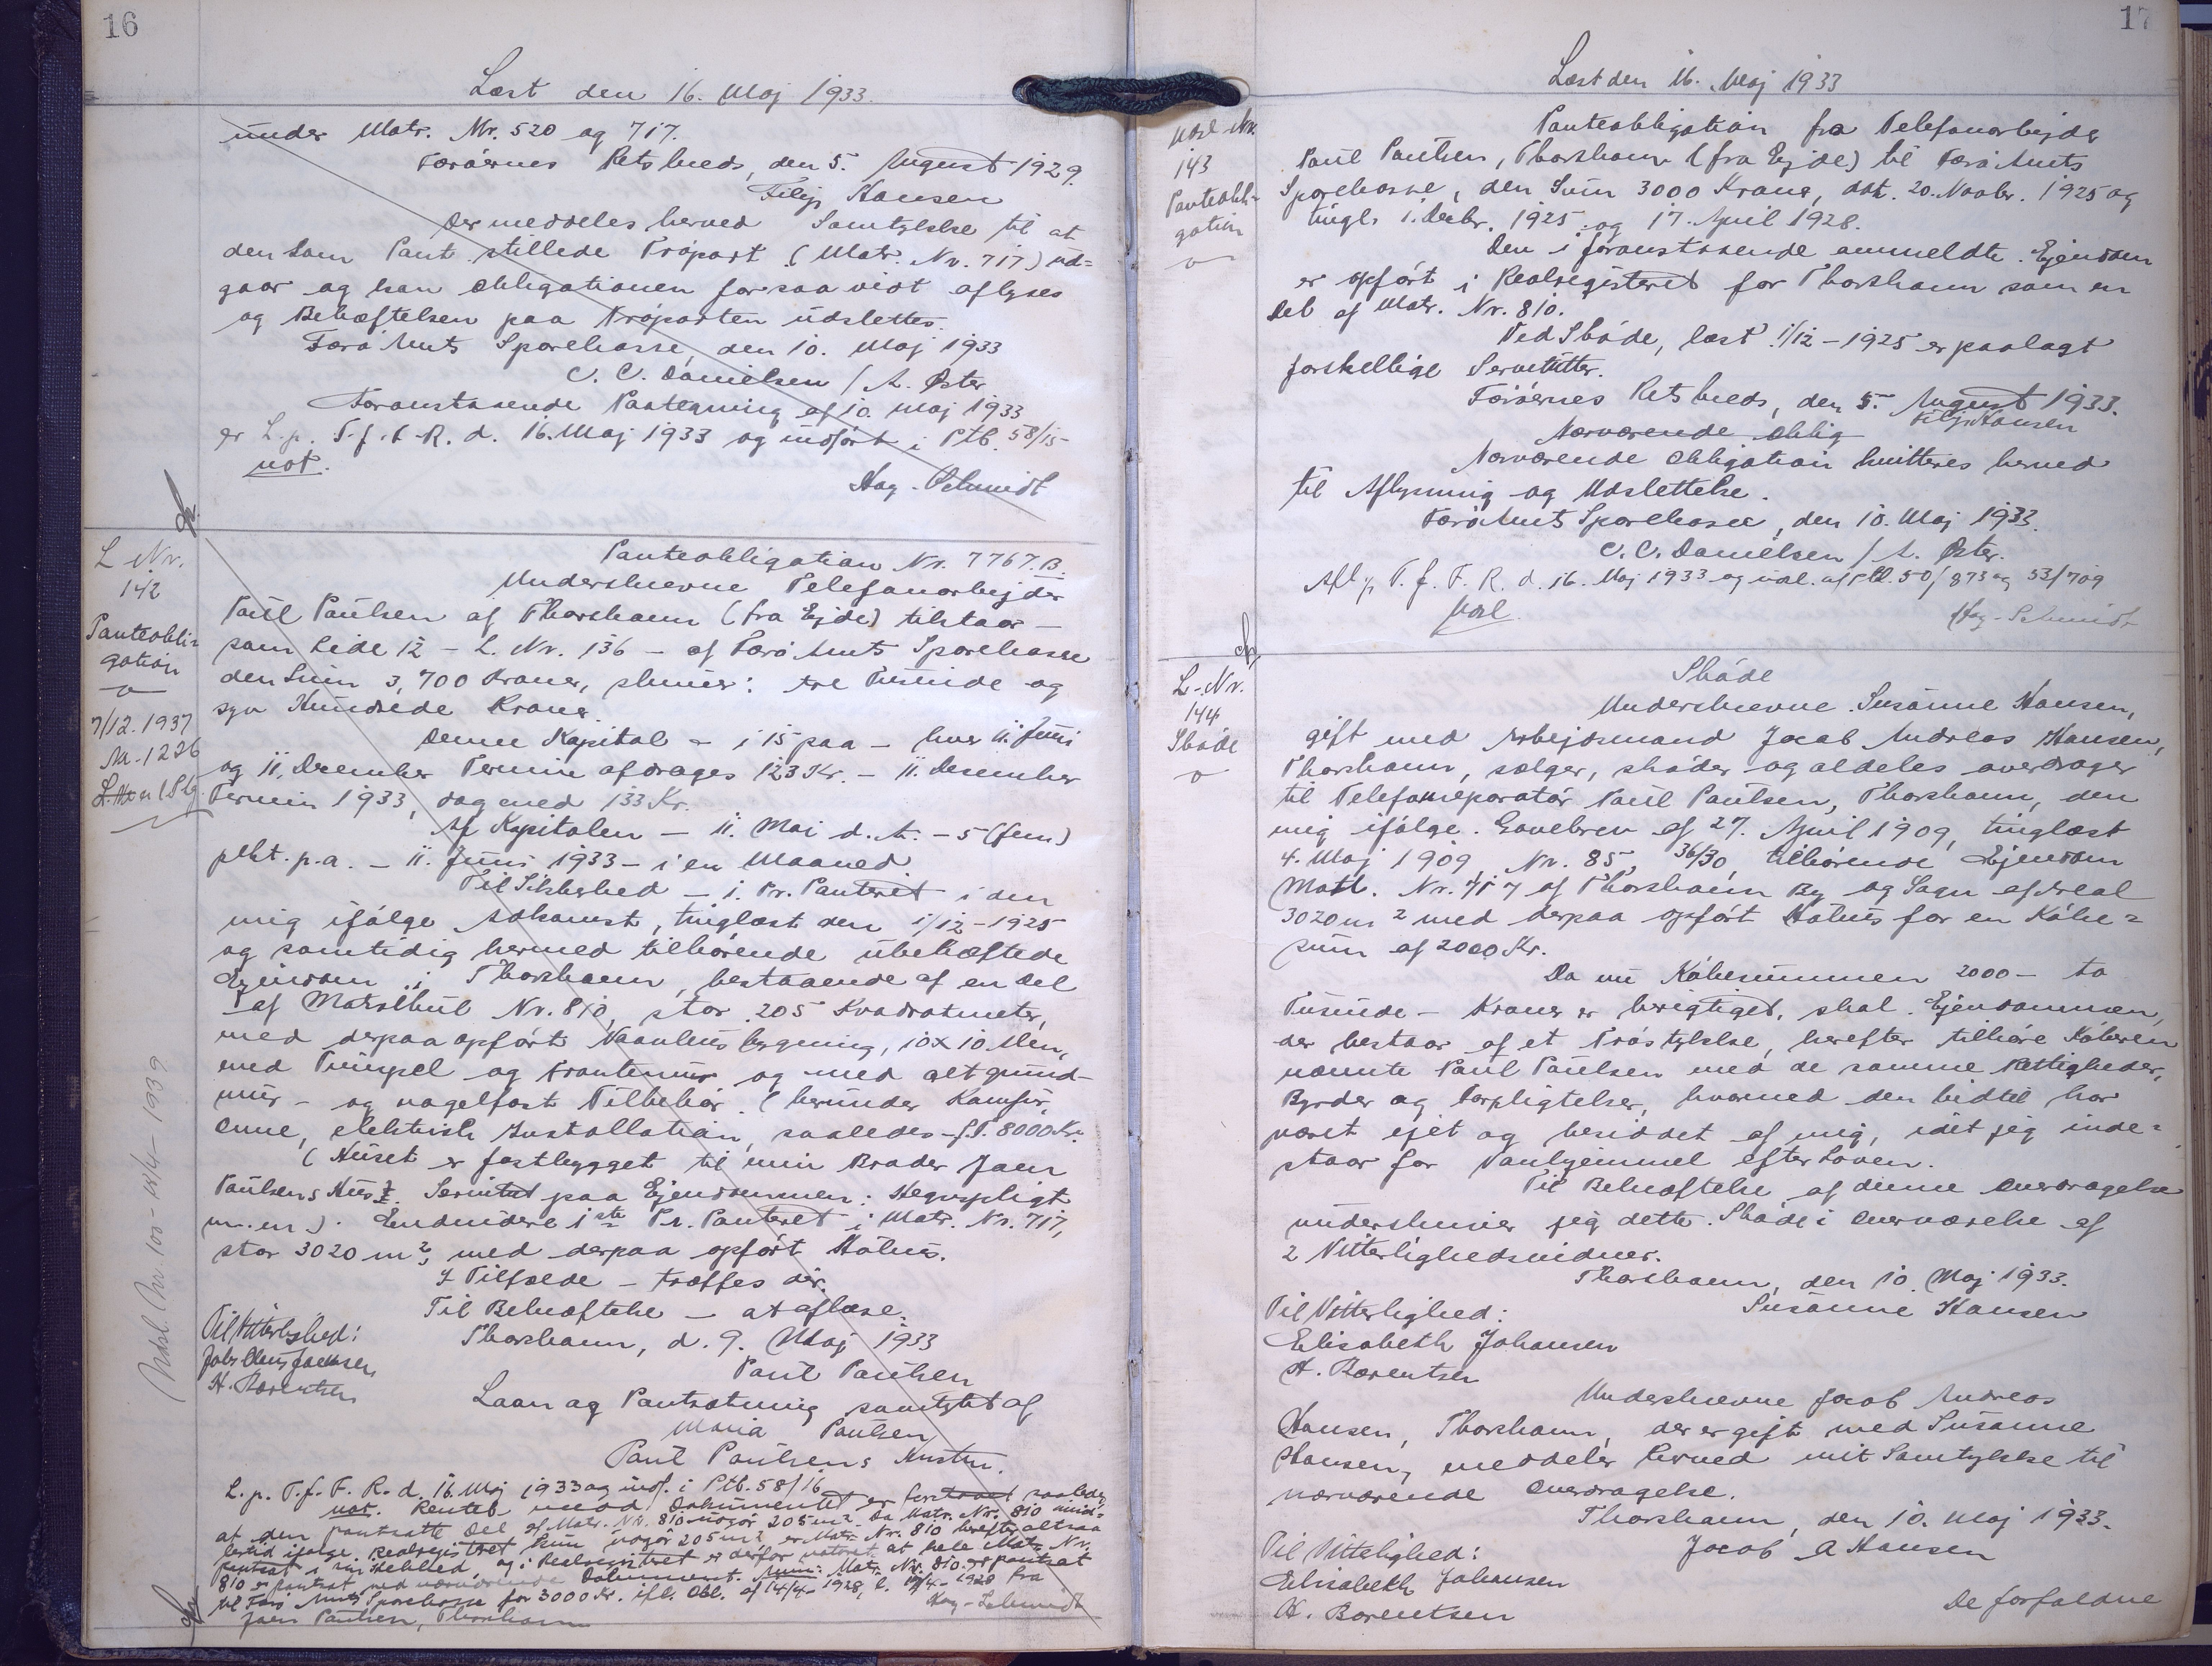 16
Læst den 16. Maj 1933.
under Matr. Nr. 520 og 717.
Færøernes Retskreds, den 5. August 1929.
Filip Hansen
Der meddeles herved Samtykke til at
den som Pant stillede Trøpart (Matr. Nr. 717) ud=
gaar og kan Obligationen forsaavidt aflyses
og Behæftelsen paa Trøparten udslettes.
Færø Amts Sparekasse, den 10. Maj 1933
C. C. Danielsen / A. Øster
Foranstaaende Paategning af 10. Maj 1933
er L. p. T. f. F. R. d. 16. Maj 1933 og indført i Ptb. 58/15
not.
Hag. Schmidt
L Nr.
142
Panteobli=
gation
7/12.1937
Nr. 1226
Panteobligation Nr. 7767.B.
Underskrevne Telefonarbejder
Paul Paulsen af Thorshavn (fra Ejde) tilstaar –
som Side 12 – L. Nr. 136 – af Færø Amts Sparekasse
den Sum 3,700 Kroner, skriver: tre Tusinde og
syv Hundrede Kroner.
Denne Kapital – i 15 paa – hver 11. Juni
og 11. December Termin afdrages 123 Kr. – 11. December
Termin 1933, dog med 133 Kr.
Af Kapitalen – 11. Maj d. A. – 5 (fem)
pCt. p.a. – 11. Juni 1933 – i en Maaned
Til Sikkerhed – i. Pr. Panteret i den
mig ifølge Adkomst, tinglæst den 1/12 – 1925
og samtidig hermed tilhørende ubehæftede
Ejendom i Thorshavn, bestaaende af en Del
af Matrikul Nr. 810, stor 205 Kvadratmeter,
med derpaa opført Vaanhus bygning, 10 x 10 Alen,
med Tringsel og Frontener og med alt grund-
mur – og nagelfast Tilbehør (herunder Komfur,
Ovne, elektrisk Installation, saaledes – f. T. 8000 Kr.
(Huset er fastbygget til min Broder Joen
Paulsens Hus). Servitut paa Ejendommen: Hegnspligt
m.m.). Endvidere 1ste Pr. Panteret i Matr. Nr. 717,
stor 3020 m2, med derpaa opført Høhus.
I Tilfælde – træffes der.
Til Bekræftelse – at aflæse.
Thorshavn, d. 9. Maj 1933
Paul Paulsen
Til Vitterlighed:
H. Barentsen
Laan og Pantsætning samtykt af
Maria Paulsen
Paul Paulsens Hustru.
Udsl. Nr. 100 1939
L. p. T. f. F. R. d. 16. Maj 1933 og indf. i Ptb. 58/16
not. Rentes Dokumentet er saaledes
at den pantsatte Del af Matr. Nr. 810 udgør 205 m2. Da Matr. Nr. 810
ifølge Realregistret kun udgør 205 m2, er Matr. Nr. 810 herefter altsaa
pantsat i sin Helhed, og i Realregistret er derfor noteret at hele Matr. Nr.
810 er pantsat med nærværende Dokument. Anm: Matr. Nr. 810 er pantsat
til Færø Amts Sparekasse for 3000 Kr. ifl. Obl. af 14/4 – 1928, l. 17/4 – 1928 fra
Joen Paulsen, Thorshavn
Hag. Schmidt
17
Læst den 16. Maj 1933
Udsl. Nr.
143
Panteobli=
gation
Panteobligation fra Telefonarbejder
Paul Paulsen, Thorshavn (fra Ejde) til Færø Amts
Sparekasse, den Sum 3000 Kroner, dat. 20. Novbr. 1925 og
tingl. 1. Decbr. 1925 og 17. April 1928.
Den i foranstaaende anmeldte Ejendom
er opført i Realregisteret for Thorshavn som en
Del af Matr. Nr. 810.
Ved Skøde, læst 1/12 – 1925 er paalagt
forskellige Servitutter.
Færøernes Retskreds, den 5. August 1933.
Filip Hansen
Nærværende Oblig
Nærværende Obligation kvitteres herved
til Aflysning og Udslettelse.
Færø Amts Sparekasse, den 10. Maj 1933.
C. C. Danielsen / A. Øster.
Afl. p. T. f. F. R. d. 16. Maj 1933 og udsl. af Ptb. 50/873 og 53/709
Udsl.
Hag. Schmidt
L. Nr.
144
Skøde
Skøde
Underskrevne Susanne Hansen,
gift med Arbejdsmand Jacob Andreas Hansen,
Thorshavn, sælger, skøder og aldeles overdrager
til Telefonreparatør Paul Paulsen, Thorshavn, den
mig ifølge Gavebrev af 27. April 1909, tinglæst
4. Maj 1909 Nr. 85, 36/30, tilhørende Ejendom
Matr. Nr. 717 af Thorshavn By og Sogn af Areal
3020 m2 med derpaa opført Høhus for en Købe=
sum af 2000 Kr.
Da nu Købesummen 2000 – to
Tusinde – Kroner er berigtiget, skal Ejendommen,
der bestaar af et Trøstykke, herefter tilhøre Køberen
nævnte Paul Paulsen med de samme Rettigheder,
Byrder og Forpligtelser, hvormed den hidtil har
været ejet og besiddet af mig, idet jeg inde=
staar for Vanhjemmel efter Loven.
Til Bekræftelse af denne Overdragelse
underskriver jeg dette Skøde i Overværelse af
2 Vitterlighedsvidner.
Thorshavn, den 10. Maj 1933.
Susanne Hansen
Til Vitterlighed:
Elisabeth Johansen
H. Barentsen
Underskrevne Jacob Andreas
Hansen, Thorshavn, der er gift med Susanne
Hansen, meddeler herved mit Samtykke til
nærværende Overdragelse.
Thorshavn, den 10. Maj 1933.
Jacob A Hansen
Til Vitterlighed:
Elisabeth Johansen
H. Barentsen
De forfaldne